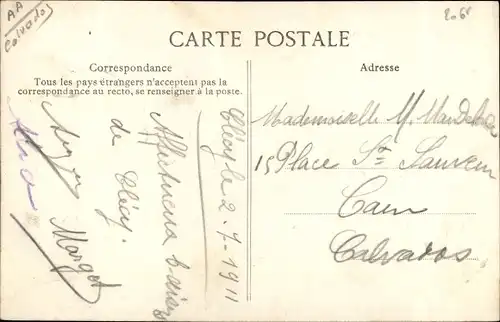 AA
Calvados
CARTE POSTALE
Correspondance
Tous les pays étrangers n'acceptent pas la
correspondance au recto, se renseigner à la poste.
Adresse
Clécy le 2-7-1911
Affectueux baisers
de Clécy.
Margot
Mademoiselle M.
15 Place St Sauveur
Caen
Calvados